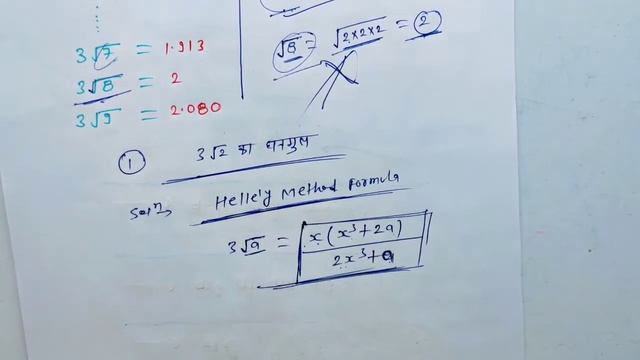 3√7 = 1.913
3√8 = 2
3√9 = 2.080
√8 = √2×2×2 = 2
① 3√2 का घनमुल
Solⁿ Helle'y Method Formula
3√a = x(x³+2a) / 2x³+a